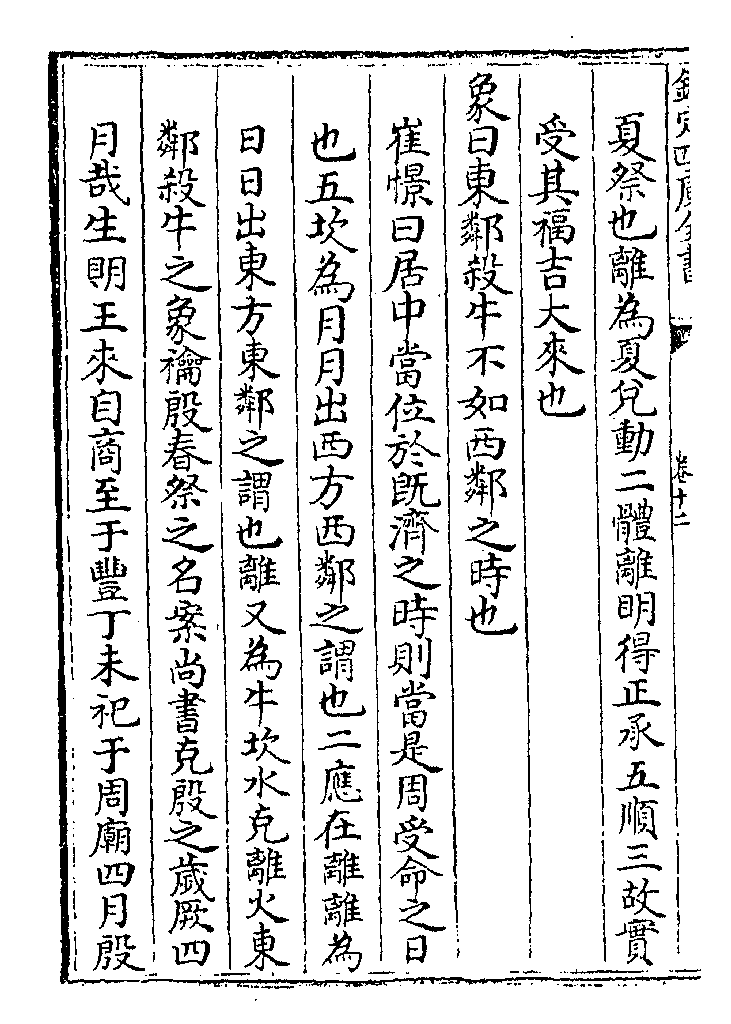 欽定四庫全書
卷十二
夏祭也離為夏兌動二體離明得正承五順三故實
受其福吉大來也
象曰東鄰殺牛不如西鄰之時也
崔憬曰居中當位於既濟之時則當是周受命之日
也五坎為月月出西方西鄰之謂也二應在離離為
日日出東方東鄰之謂也離又為牛坎水克離火東
鄰殺牛之象禴殷春祭之名案尚書克殷之歲厥四
月哉生明王來自商至于豐丁未祀于周廟四月殷